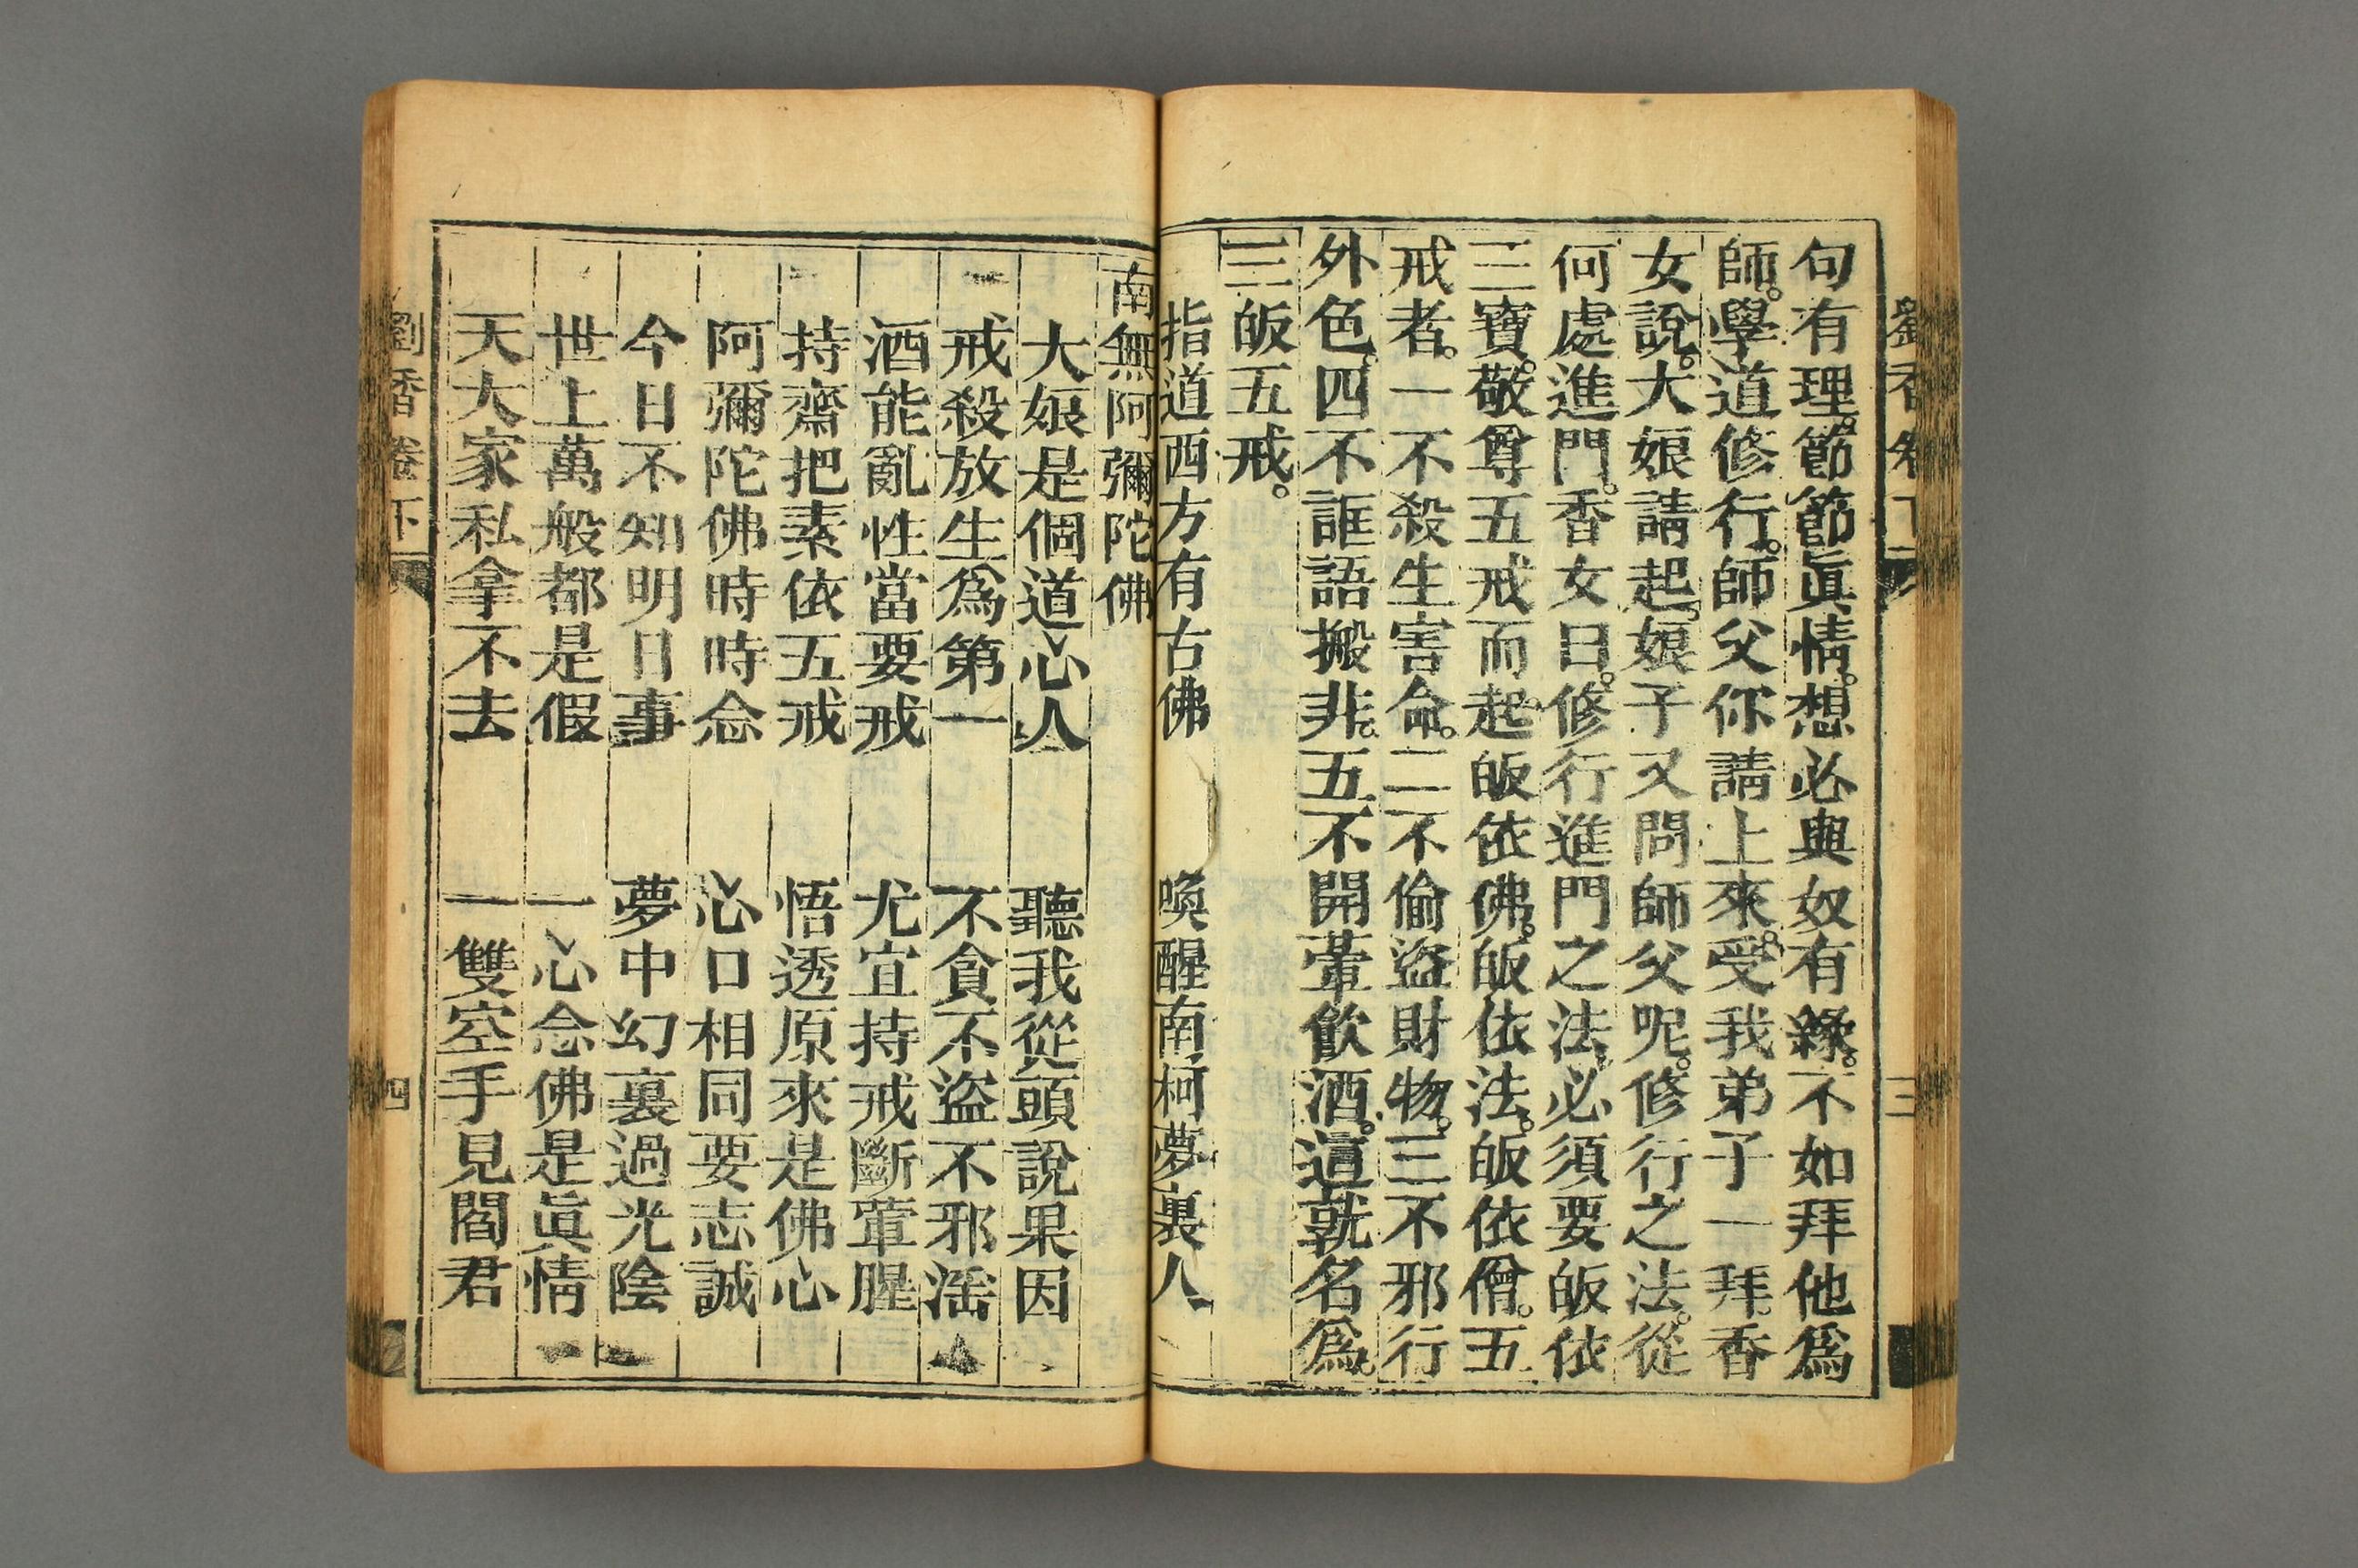 劉香卷下 三
句有理。節節眞情。想必與奴有緣。不如拜他爲
師。學道修行。師父你請上來。受我弟子一拜。香
女說。大娘請起。娘子又問師父呢。修行之法。從
何處進門。香女曰。修行進門之法。必須要皈依
三寶。敬尊五戒而起。皈依佛。皈依法。皈依僧。五
戒者。一不殺生害命。二不偷盜財物。三不邪行
外色。四不誑語搬非。五不開葷飲酒。這就名爲。
三皈五戒。
指道西方有古佛 喚醒南柯夢裏人
南無阿彌陀佛
大娘是個道心人 聽我從頭說果因
戒殺放生爲第一 不貪不盜不邪淫
酒能亂性當要戒 尤宜持戒斷葷腥
持齋把素依五戒 悟透原來是佛心
阿彌陀佛時時念 心口相同要志誠
今日不知明日事 夢中幻裏過光陰
世上萬般都是假 一心念佛是眞情
天大家私拿不去 一雙空手見閻君
劉香卷下 四